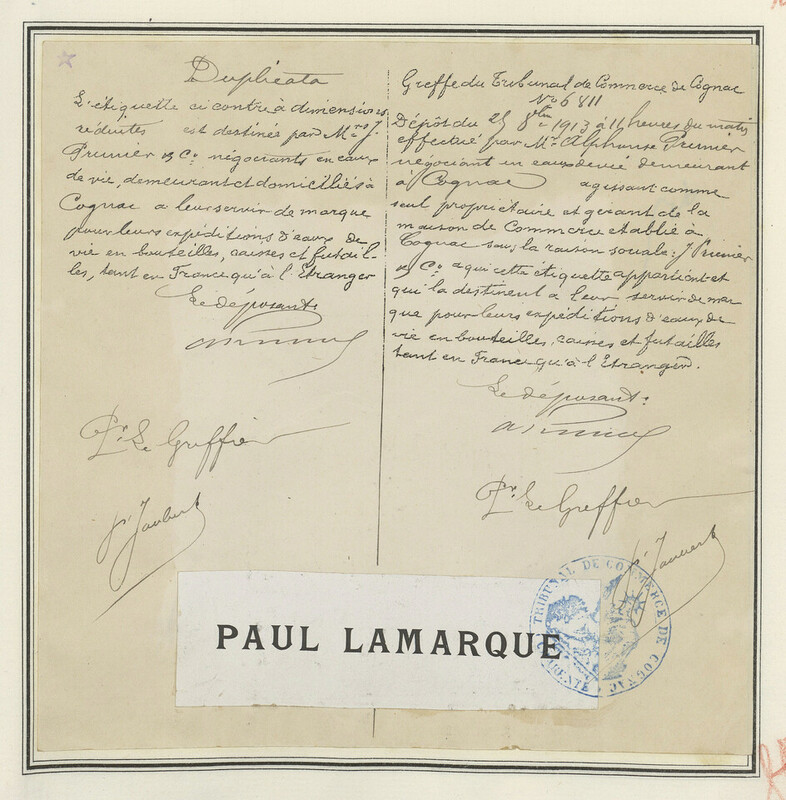 Duplicata
L'étiquette ci contre à dimensions
réduites est destinée par Mrs J.
Prunier & Co négociants en eaux
de vie, demeurant et domiciliés à
Cognac a leur servir de marque
pour leurs expéditions d'eaux de
vie en bouteilles, caisses et futail-
les, tant en France qu'à l'Etranger
Le déposant:
Pr Le Greffier
Greffe du Tribunal de Commerce de Cognac
No 6811
Dépôt du 25 8bre 1913 à 11 heures du matin
effectué par Mr Alphonse Prunier
négociant en eaux de vie demeurant
à Cognac agissant comme
seul propriétaire et gérant de la
maison de Commerce etablie à
Cognac sous la raison sociale: J Prunier
& Co a qui cette étiquette appartient et
qui la destinent a leur servir de mar
que pour leurs expéditions d'eaux de
vie en bouteilles, caisses et futailles
tant en France qu'à l'Etranger.
Le déposant:
Pr Le Greffier
PAUL LAMARQUE
TRIBUNAL DE COMMERCE DE COGNAC
CHARENTE